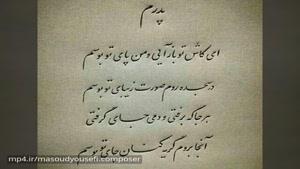 پدرم
ای کاش تو باز آیی و من پای تو بوسم
در سجده روم صورت زیبای تو بوسم
هر جا که برفتی و دمی جای گرفتی
آنجا بروم گریه کنان جای تو بوسم
mp4.ir/masoudyousefi.composer